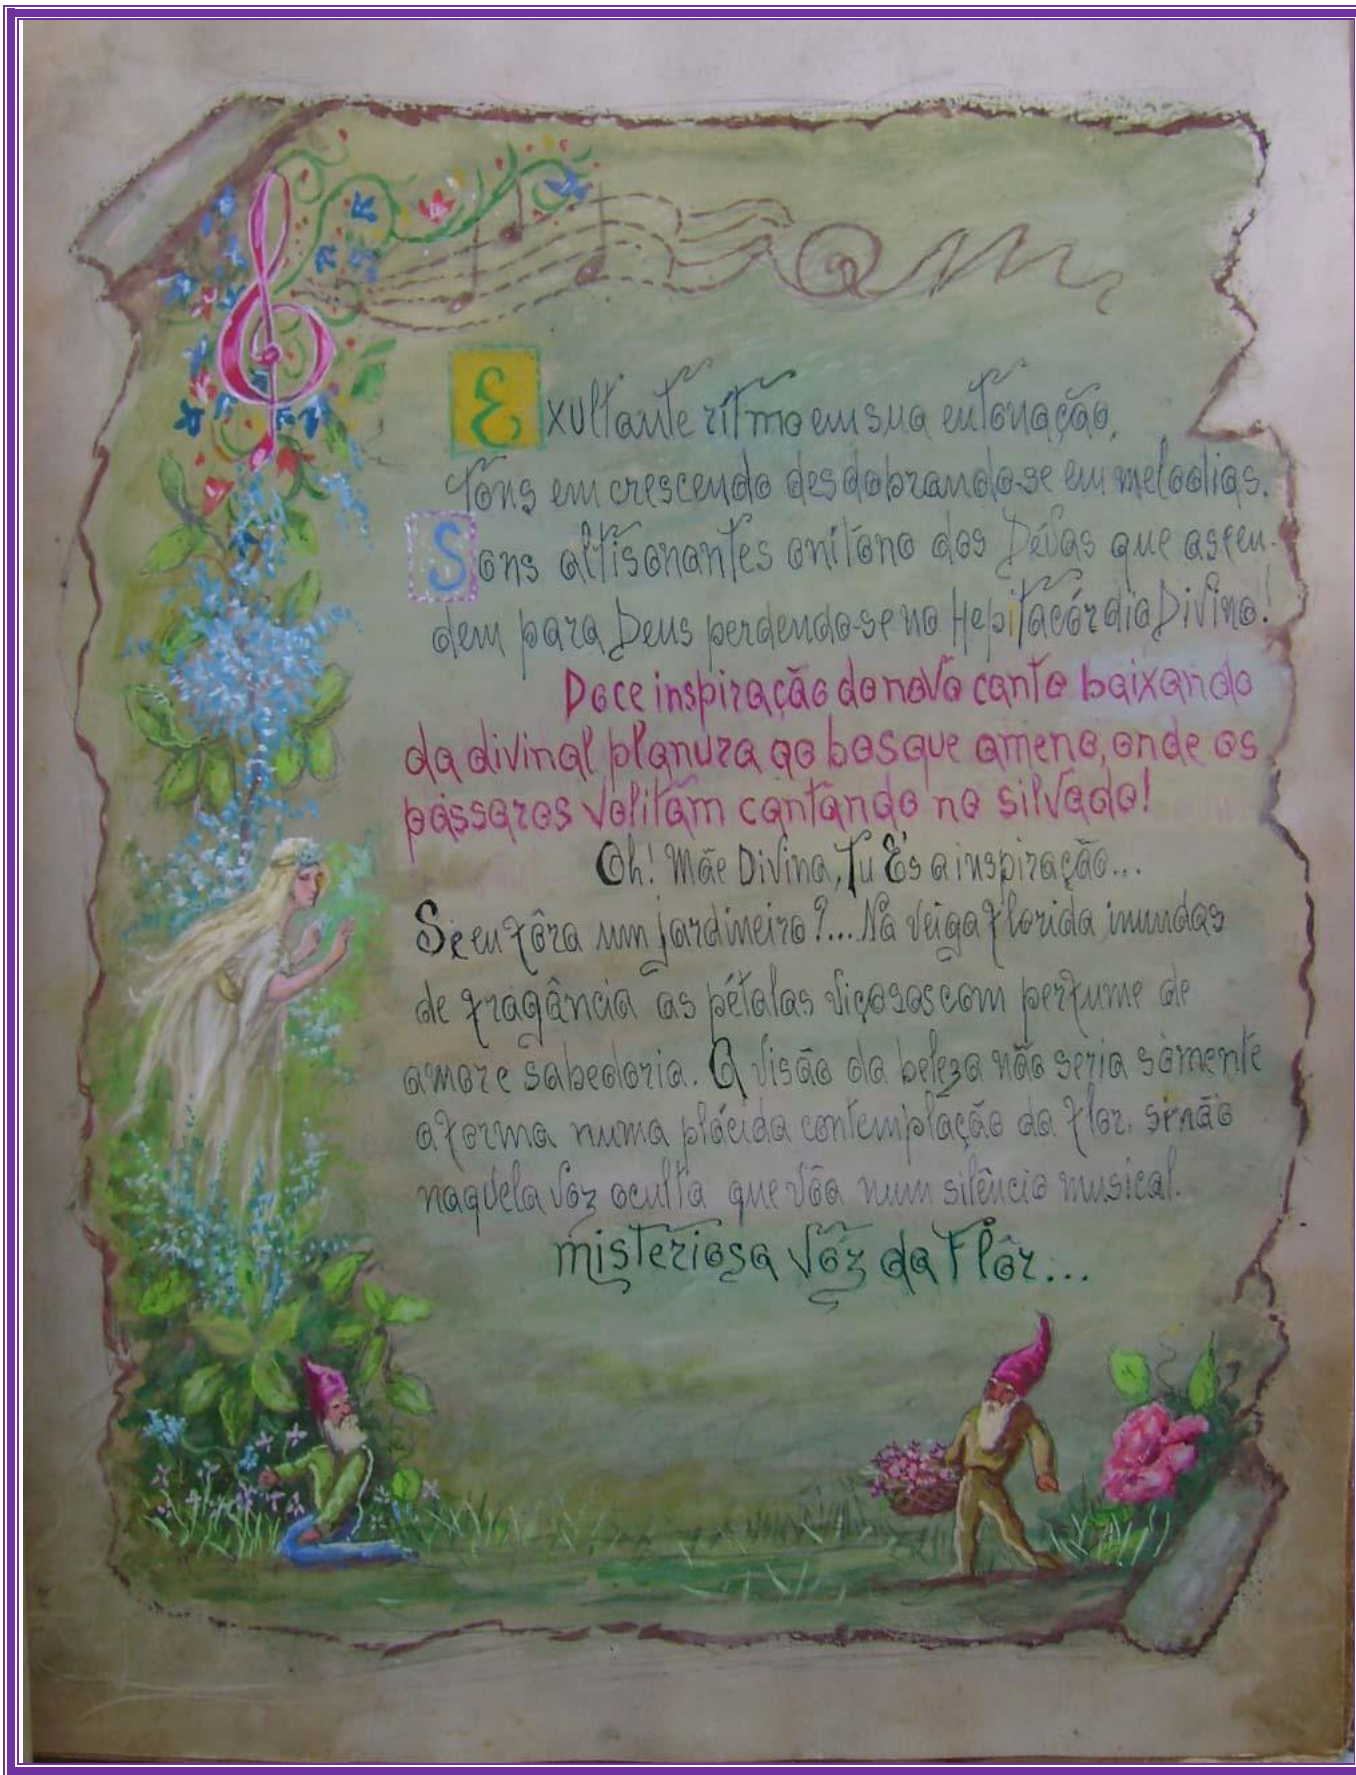 Om
Exultante rítmo em sua entonação,
Tons em crescendo desdobrando-se em melodias.
Sons altisonantes onitono dos Dévas que ascen-
dem para Deus perdendo-se no Heptacórdio Divino!
Doce inspiração do novo canto baixando
da divinal planura ao bosque ameno, onde os
pássaros volitam cantando no silvado!
Oh! Mãe Divina, Tu És a inspiração...
Se eu fôra um jardineiro?... Na veiga florida inundas
de fragância as pétalas viçosas com perfume de
amor e sabedoria. A visão da beleza não seria sòmente
a forma numa plácida contemplação da flor, senão
naquela voz oculta que vôa num silêncio musical.
misteriosa Vóz da Flôr...